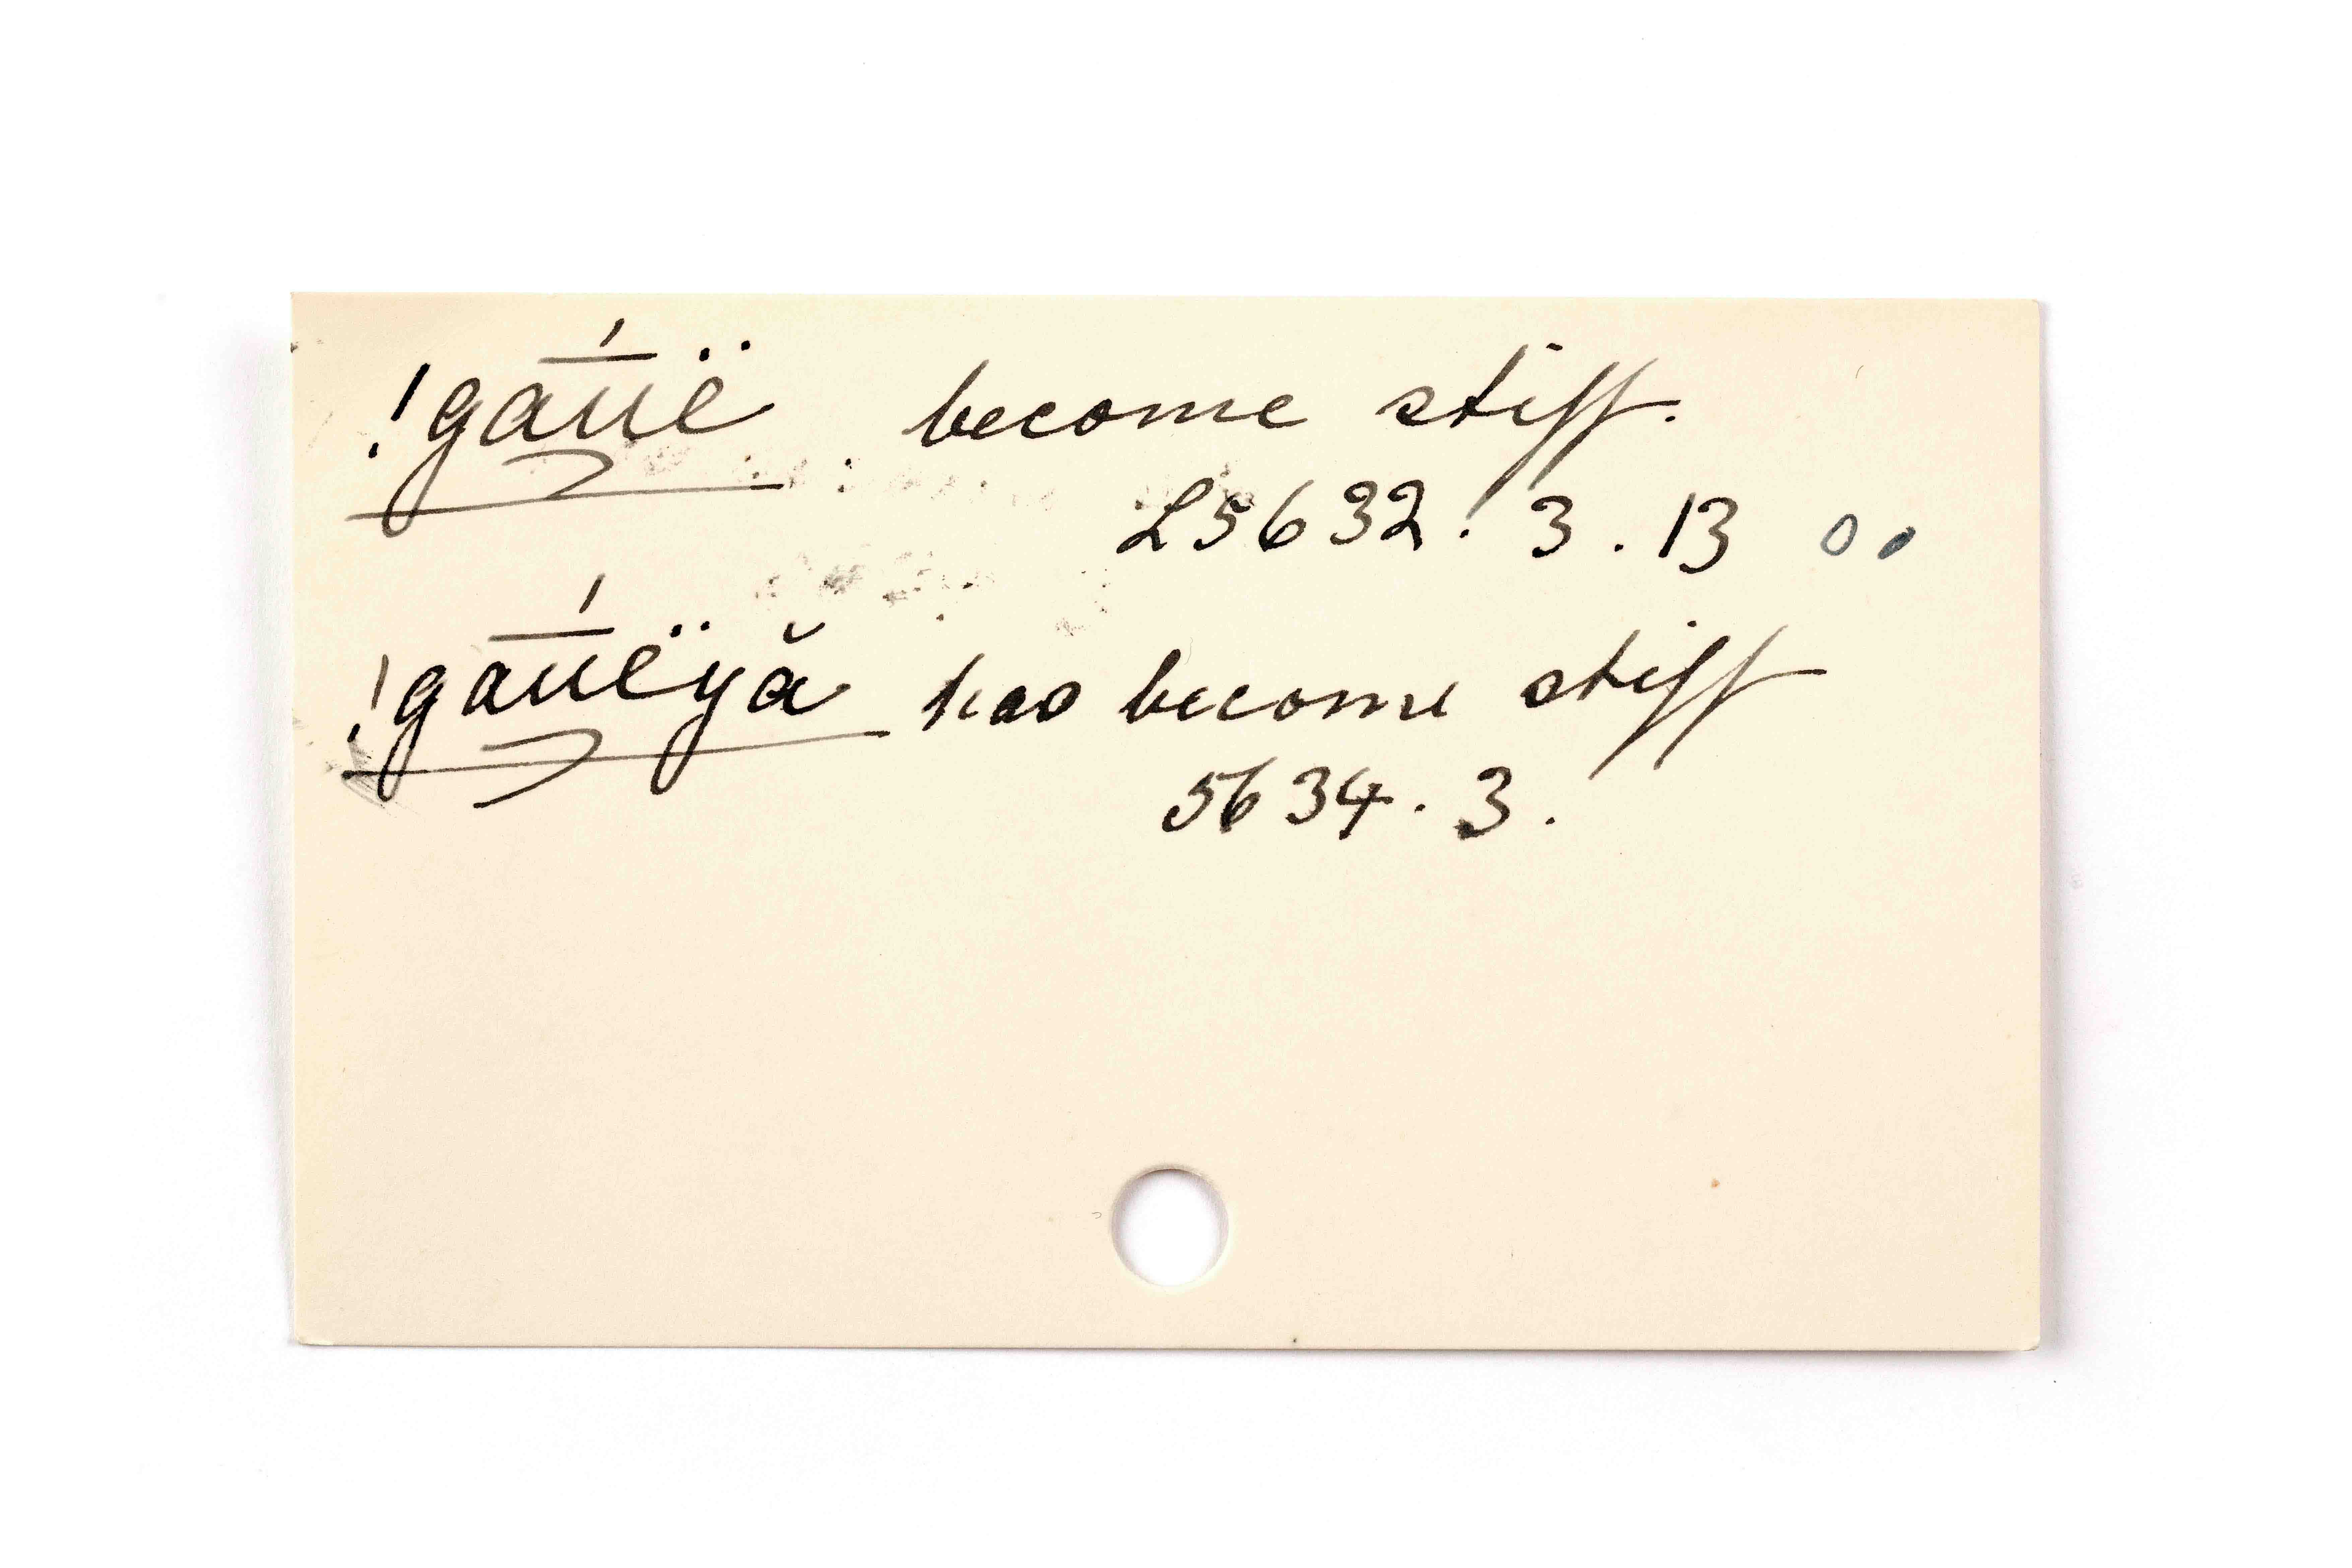 !gā́u̳ë become stiff.
L5632. 3. 13 00
!gā́u̳ëyă has become stiff
5634. 3.